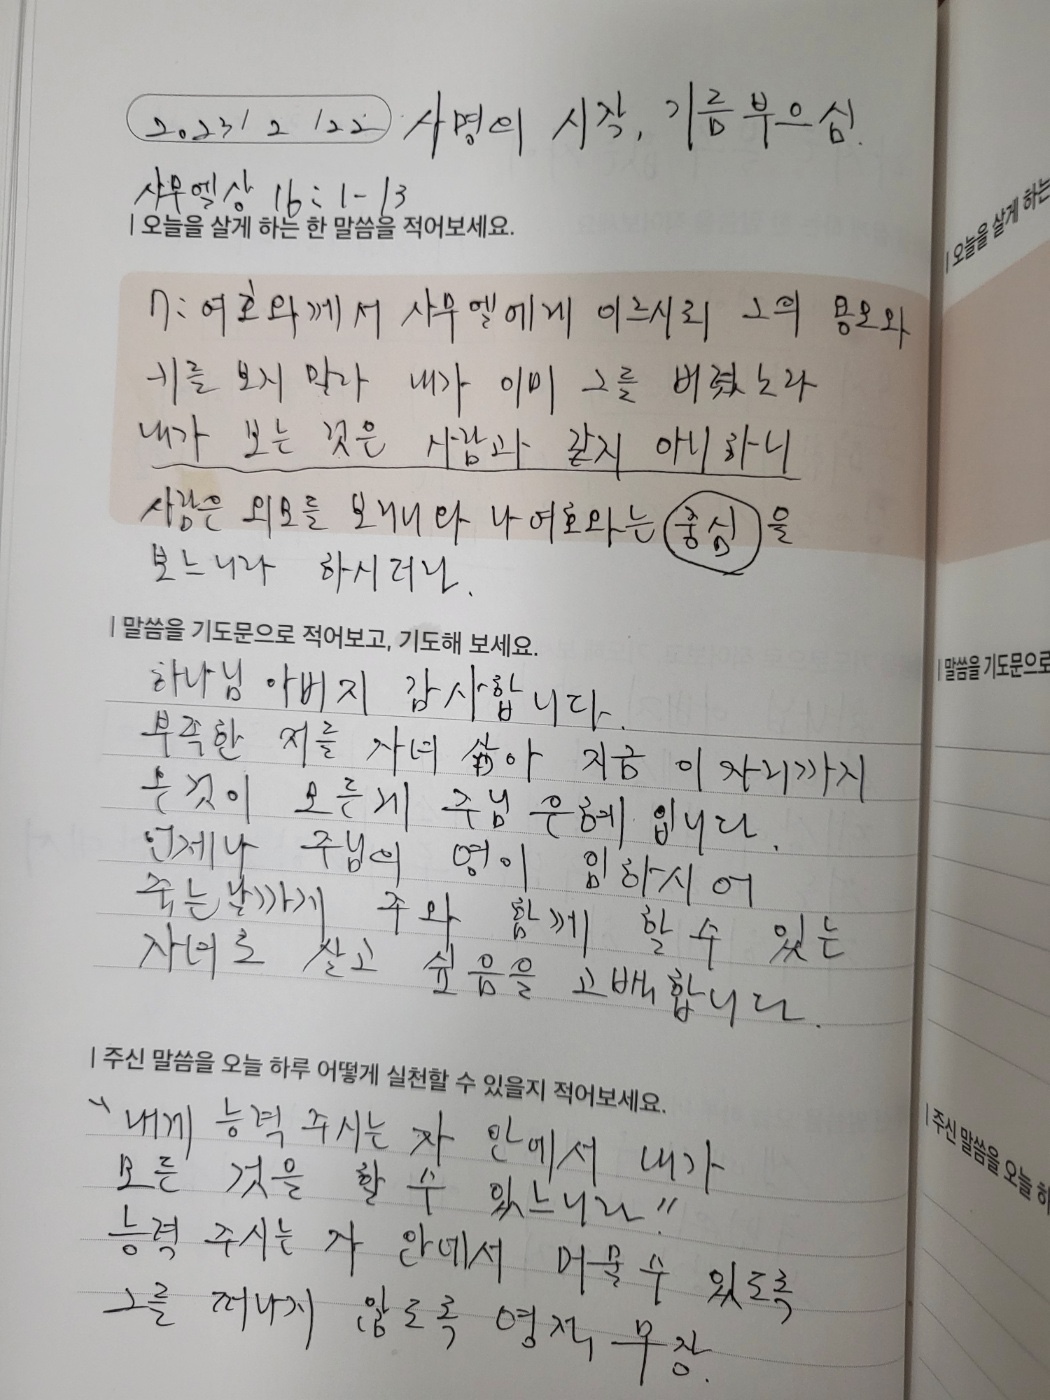 2023/2/22 사명의 시작, 기름부으심.
사무엘상 16:1-13
| 오늘을 살게 하는 한 말씀을 적어보세요.
7: 여호와께서 사무엘에게 이르시되 그의 용모와
키를 보지 말라 내가 이미 그를 버렸노라
내가 보는 것은 사람과 같지 아니하니
사람은 외모를 보거니와 나 여호와는 중심을
보느니라 하시더라.
| 말씀을 기도문으로 적어보고, 기도해 보세요.
하나님 아버지 감사합니다.
부족한 저를 자녀 삼아 지금 이 자리까지
온것이 모든게 주님 은혜 입니다.
언제나 주님의 영이 임하시어
죽는날까지 주와 함께 할 수 있는
자녀로 살고 싶음을 고백합니다.
| 주신 말씀을 오늘 하루 어떻게 실천할 수 있을지 적어보세요.
"내게 능력 주시는 자 안에서 내가
모든 것을 할 수 있느니라"
능력 주시는 자 안에서 머물수 있도록
그를 떠나지 않도록 영적 무장.
| 오늘을 살게 하는
| 말씀을 기도문으로
| 주신 말씀을 오늘 하